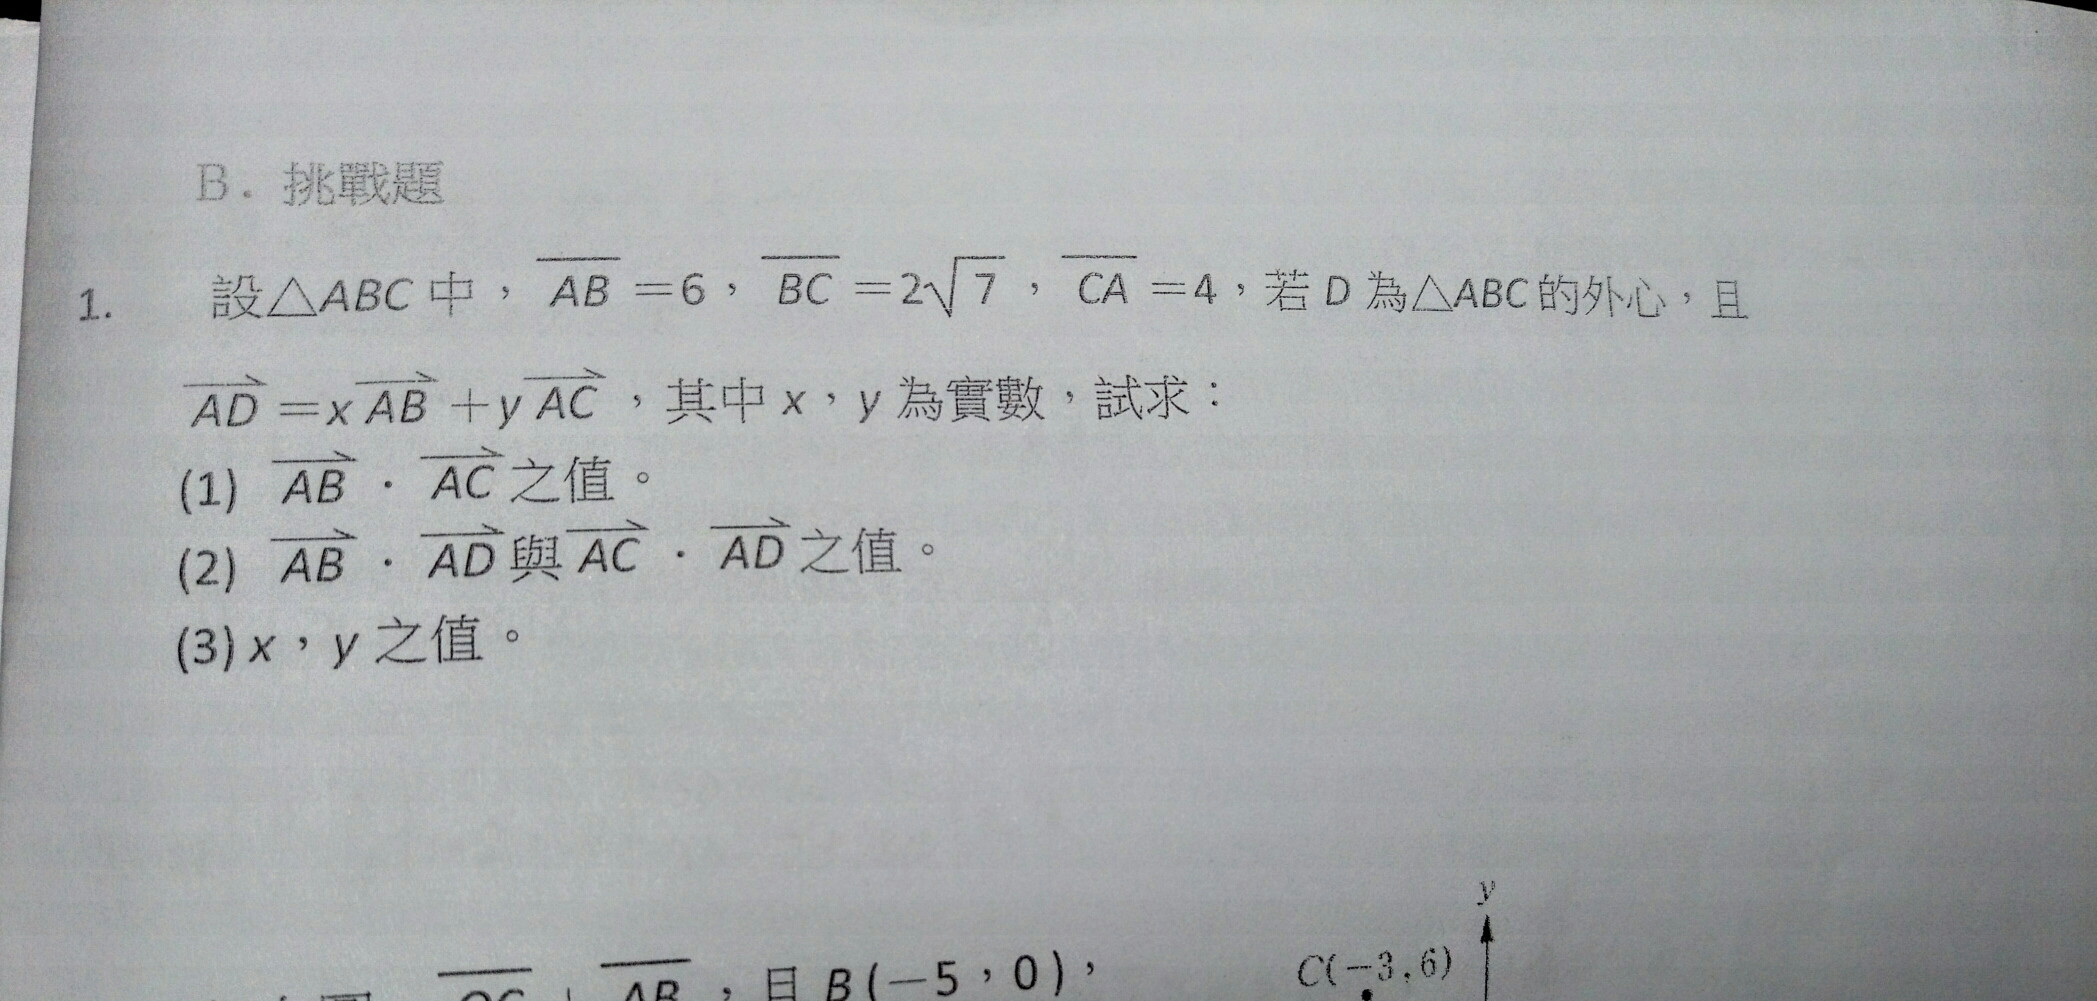 B. 挑戰題
1. 設△ABC 中，AB=6，BC=2√7，CA=4，若 D 為△ABC的外心，且
AD=xAB+yAC，其中 x，y 為實數，試求：
(1) AB．AC之值。
(2) AB．AD與AC．AD之值。
(3) x，y 之值。
y
C(−3,6)
AB，且 B(−5，0)，